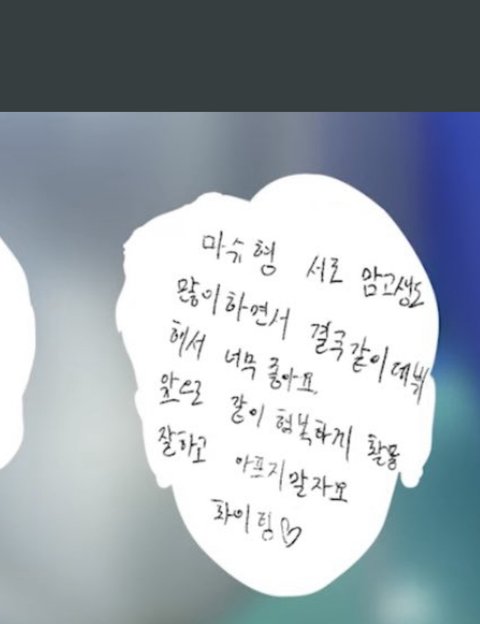 마슈형 서로 맘고생도
많이하면서 결국같이데뷔
해서 너무 좋아요.
앞으로 같이 행복하게 활동
잘하고 아프지말자요
화이팅♡